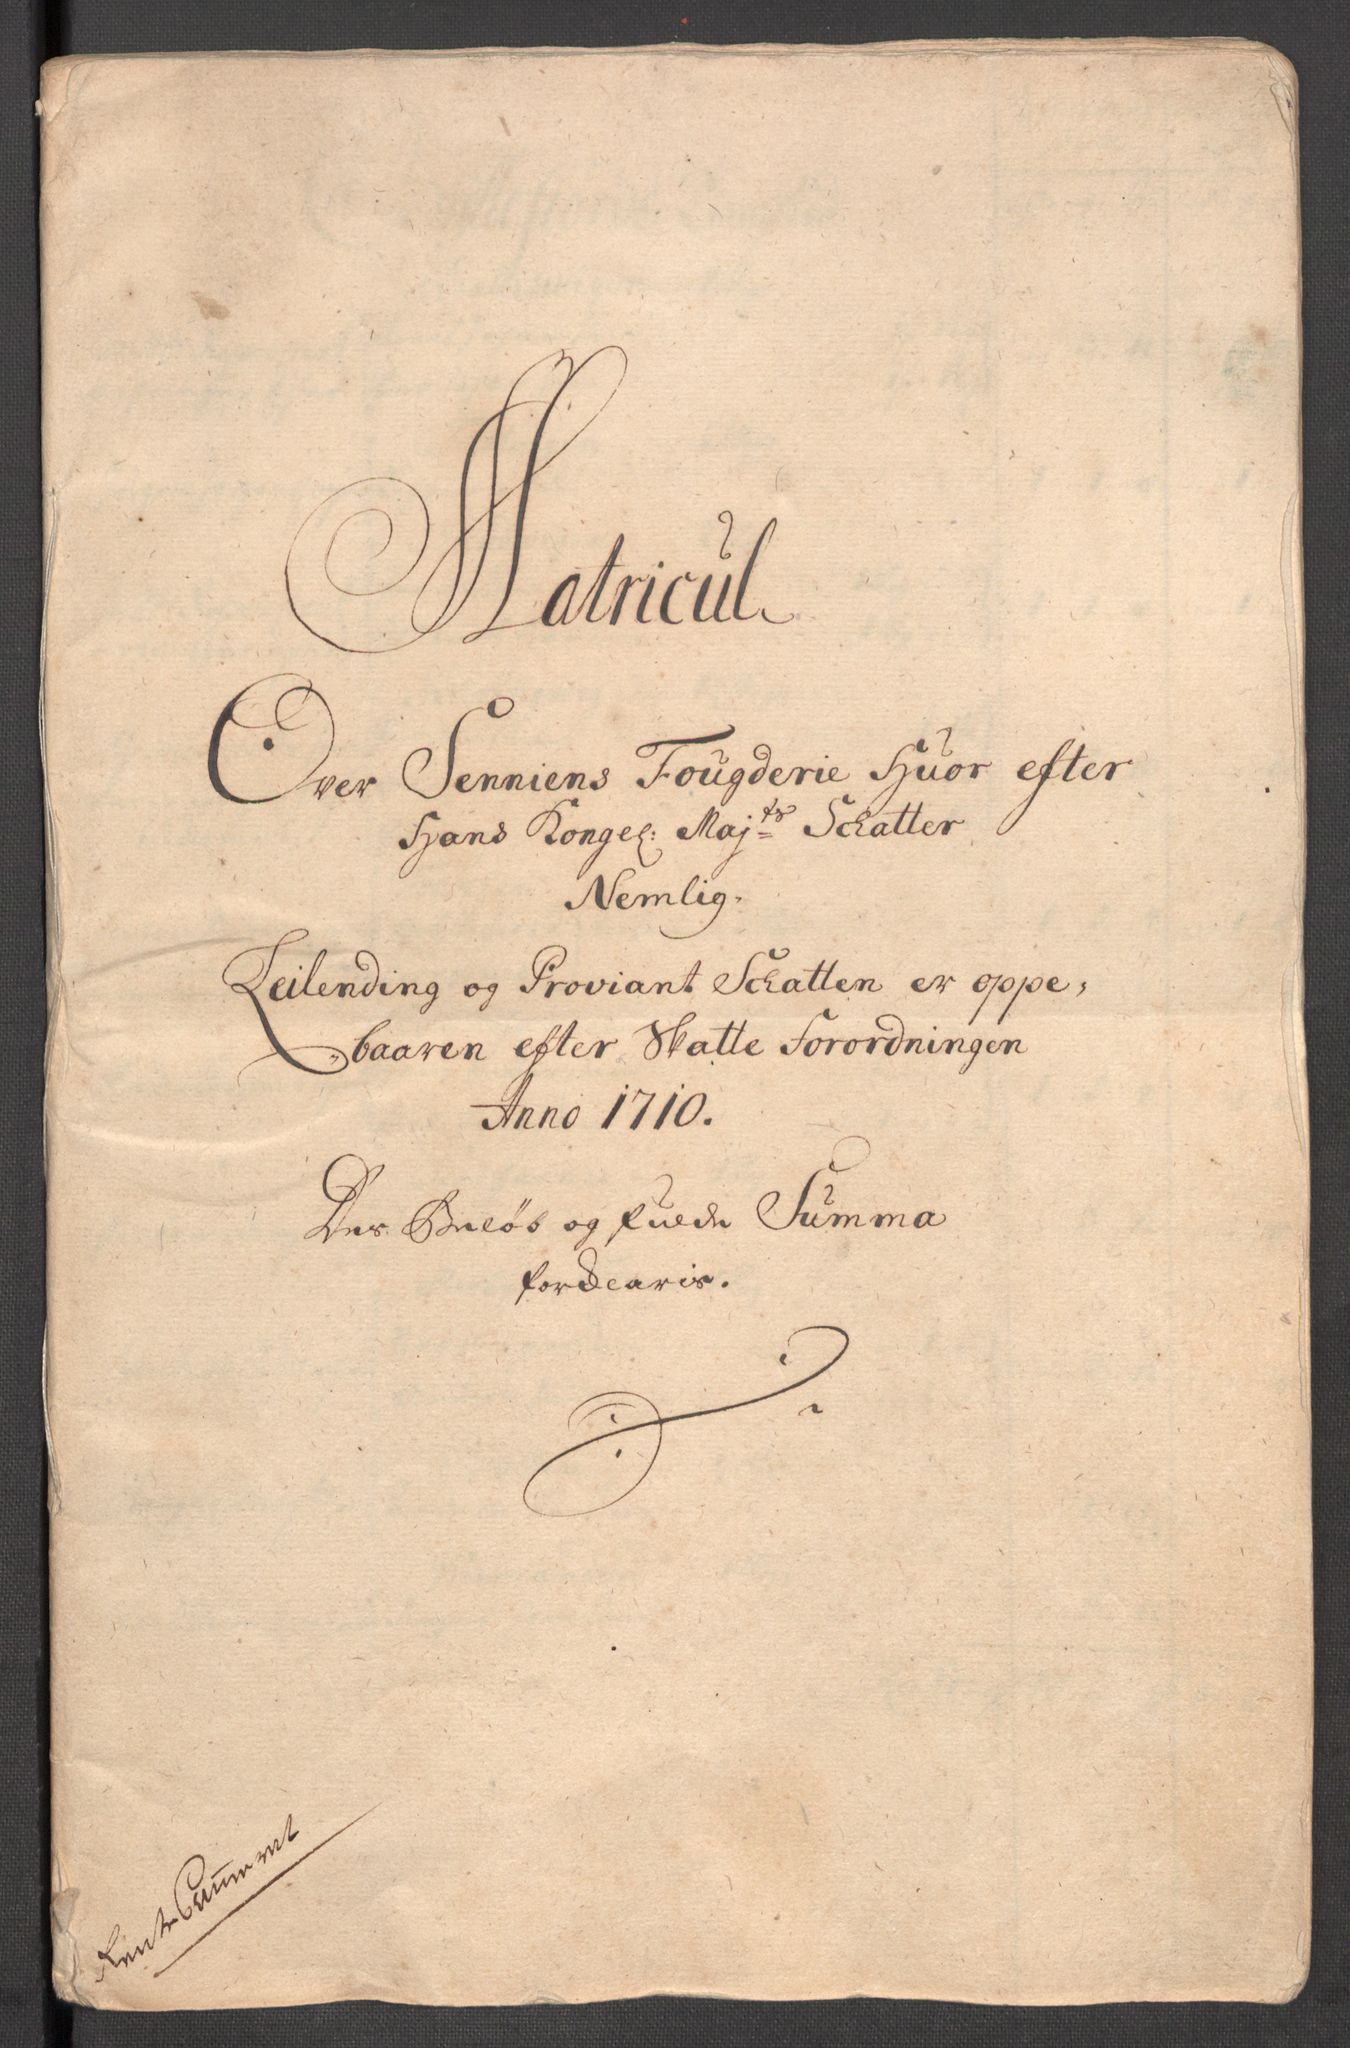 Matricul
Over Senniens Fougderie Huor efter
Hans Kongel: Maj:ts Schatter
Nemlig.
Leilending og Proviant Schatten er oppe,
baaren efter Skatte Forordningen
Anno 1710.
Des Beløb og fulde Summa
forklaris.
Rente Cammeret